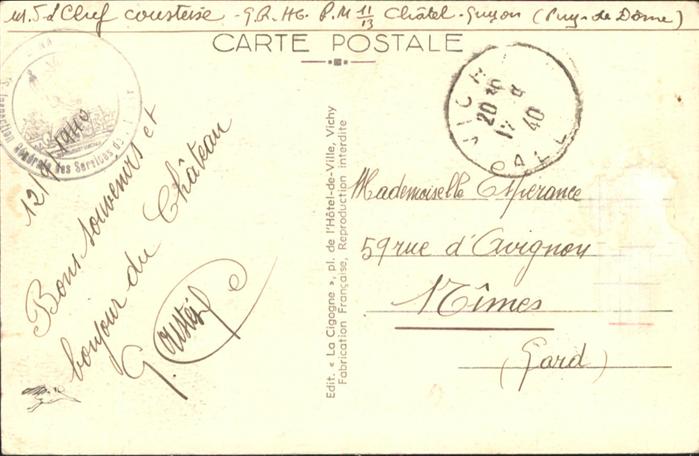 M. J-d Chef Cousteise - G.Q. HG. P.M 11/13 Châtel-Guyon (Puy-de Dôme)
CARTE POSTALE
12/7 1940
Bons souvenirs et
bonjour du Château
G.
Générale des Services
Edit. « La Cigogne », pl. de l'Hôtel-de-Ville, Vichy
Fabrication Française, Reproduction interdite
20 45
40
Mademoiselle Espérance
59 rue d'Avignon
Nîmes
(Gard)